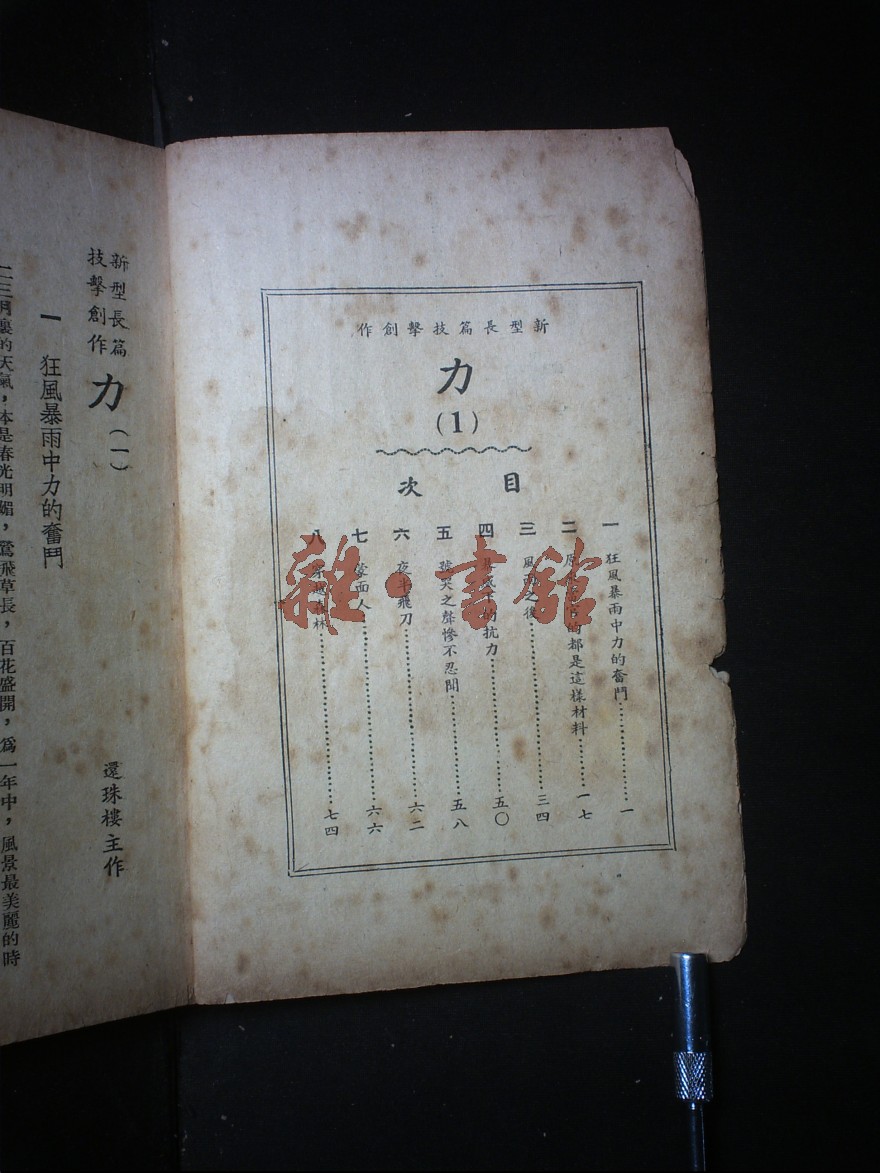 新型長篇技擊創作
力
(1)
目次
一 狂風暴雨中力的奮鬥 一
二 原 的都是這樣材料 一七
三 風雨之後 三四
四 抗力 五〇
五 犬之聲慘不忍聞 五八
六 夜半飛刀 六二
七 蒙面人 六六
八 林 七四
雜·書館
新型長篇
技擊創作
力(一)
還珠樓主作
一 狂風暴雨中力的奮鬥
二三月裏的天氣，本是春光明媚，鶯飛草長，百花盛開，爲一年中，風景最美麗的時